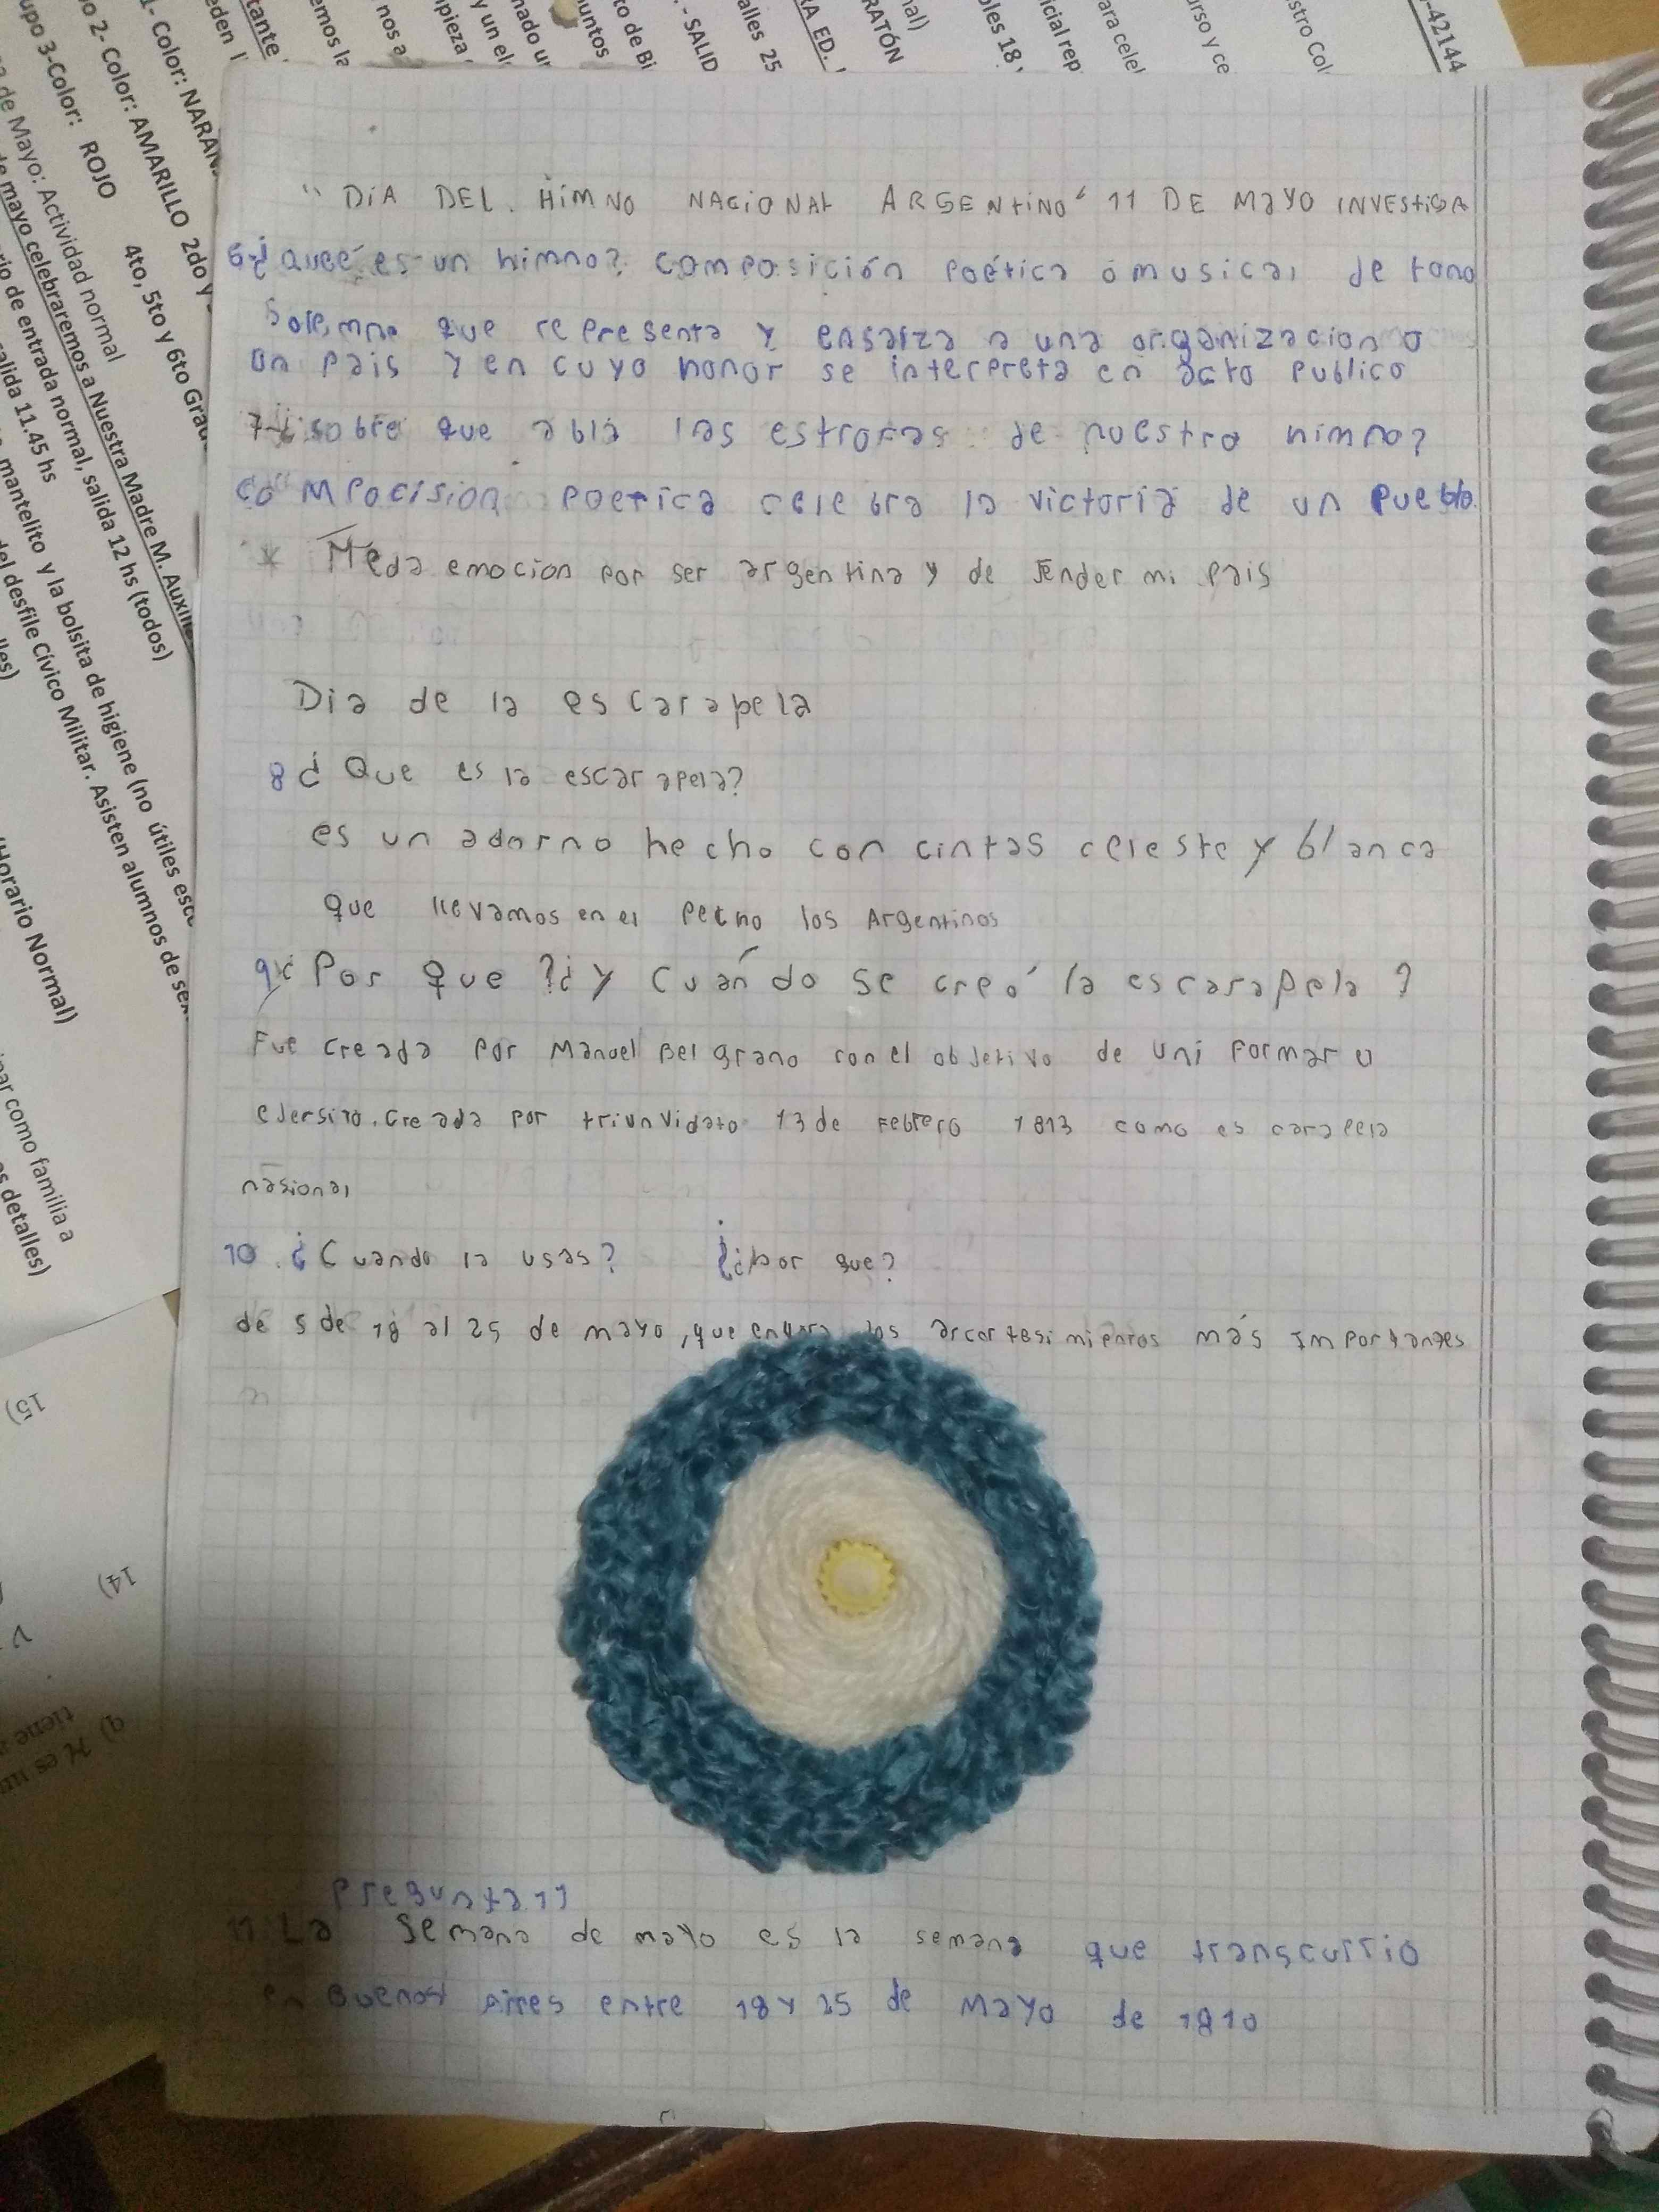 1- Color: NARAN
o 2- Color: AMARILLO 2do y
upo 3-Color: ROJO 4to, 5to y 6to Grad
de Mayo: Actividad normal
de mayo celebraremos a Nuestra Madre M. Auxili
rio de entrada normal, salida 12 hs (todos)
salida 11.45 hs
mantelito y la bolsita de higiene (no útiles esco
del desfile Cívico Militar. Asisten alumnos de se
Horario Normal)
inar como familia a
s detalles)
tante
emos la
nos a
pieza
y un el
nado u
untos
to de Bi
- SALID
alles 25
RA ED.
RATÓN
nal)
oles 18
icial rep
ara celel
urso y ce
stro Col
-42144
15)
14)
q) H es un
tiene
"DiA DEL. HiMNO NACIONAL ARGENtiNO" 11 DE MAYO INVEStiGA
6-¿queé es un himno? composición poética o musical de tono
Solemne que representa y ensalza a una organizacion o
un pais y en cuyo honor se interpreta en acto publico
7-¿sobre que abla las estrofas de nuestro himno?
compocision poetica celebra la victoria de un pueblo.
* Meda emocion por ser argentina y de fender mi pais
Dia de la escarapela
8 ¿Que es la escarapela?
es un adorno hecho con cintas celeste y blanca
que llevamos en el pecho los Argentinos
9¿Por que?¿y Cuándo se creó la escarapela?
Fue creada por Manuel Belgrano con el objetivo de uni formar u
ejersito. Creada por triunvidato 13 de Febrero 1813 como escarapela
nasional
10. ¿Cuando la usas? ¿¿por que?
de s de 18 al 25 de mayo, que los arcortesimientos más Importantes
Pregunta 11
11. La Semana de mayo es la semana que transcurrio
en Buenos Aires entre 18 y 25 de Mayo de 1810